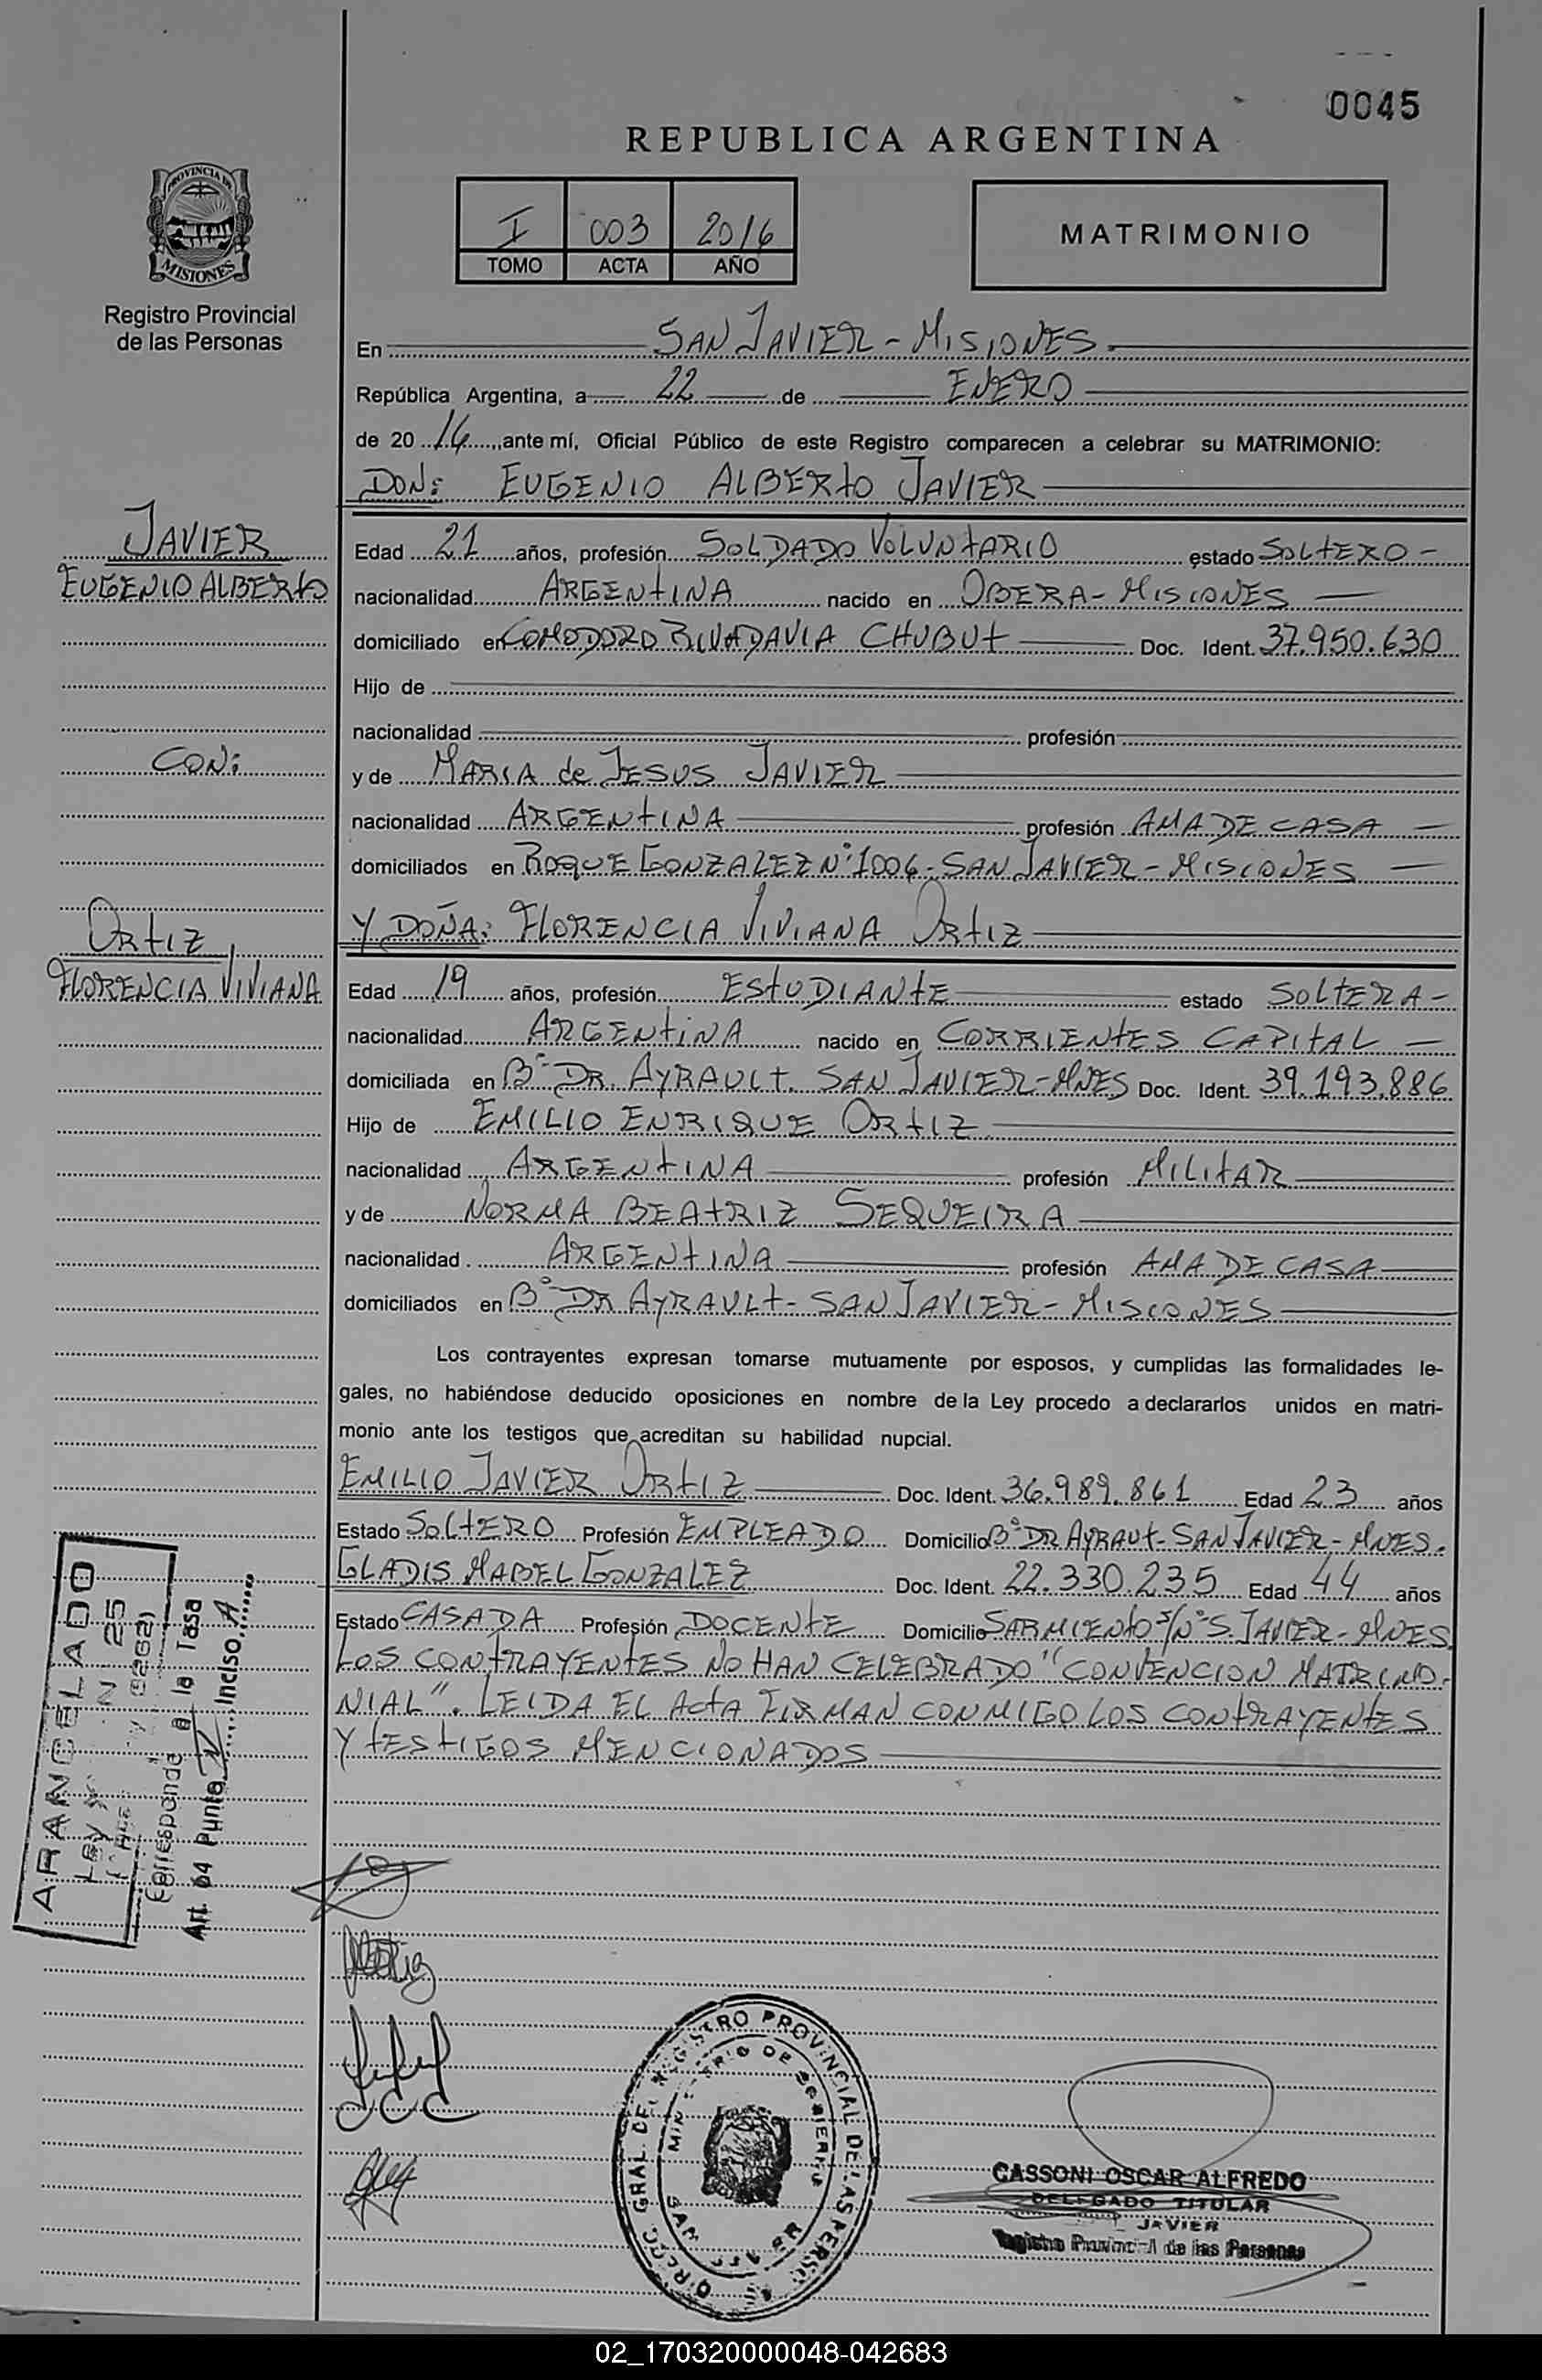 0045
REPUBLICA ARGENTINA
I 003 2016
TOMO ACTA AÑO
MATRIMONIO
PROVINCIA DE
MISIONES
Registro Provincial
de las Personas
En SAN JAVIER - MISIONES.
República Argentina, a 22 de ENERO
de 20 16, ante mí, Oficial Público de este Registro comparecen a celebrar su MATRIMONIO:
DON: EUGENIO ALBERTO JAVIER
JAVIER
EUGENIO ALBERTO
CON:
ORTIZ
FLORENCIA VIVIANA
Edad 21 años, profesión SOLDADO VOLUNTARIO estado SOLTERO -
nacionalidad ARGENTINA nacido en OBERA - MISIONES
domiciliado en COMODORO RIVADAVIA CHUBUT Doc. Ident. 37.950.630
Hijo de
nacionalidad profesión
y de MARIA de JESUS JAVIER
nacionalidad ARGENTINA profesión AMA DE CASA -
domiciliados en ROQUE GONZALEZ N° 1006 - SAN JAVIER - MISIONES
Y DOÑA: FLORENCIA VIVIANA ORTIZ
Edad 19 años, profesión ESTUDIANTE estado SOLTERA -
nacionalidad ARGENTINA nacido en CORRIENTES CAPITAL -
domiciliada en B° DR. AYRAULT. SAN JAVIER - MNES Doc. Ident. 39.193.886
Hijo de EMILIO ENRIQUE ORTIZ
nacionalidad ARGENTINA profesión MILITAR
y de NORMA BEATRIZ SEQUEIRA
nacionalidad ARGENTINA profesión AMA DE CASA
domiciliados en B° DR AYRAULT - SAN JAVIER - MISIONES
Los contrayentes expresan tomarse mutuamente por esposos, y cumplidas las formalidades le-
gales, no habiéndose deducido oposiciones en nombre de la Ley procedo a declararlos unidos en matri-
monio ante los testigos que acreditan su habilidad nupcial.
EMILIO JAVIER ORTIZ Doc. Ident. 36.989.861 Edad 23 años
Estado SOLTERO Profesión EMPLEADO Domicilio B° DR AYRAUT - SAN JAVIER - MNES.
GLADIS MABEL GONZALEZ Doc. Ident. 22.330.235 Edad 44 años
Estado CASADA Profesión DOCENTE Domicilio SARMIENTO S/N° S. JAVIER - MNES
LOS CONTRAYENTES NO HAN CELEBRADO "CONVENCION MATRIMO-
NIAL". LEIDA EL ACTA FIRMAN CONMIGO LOS CONTRAYENTES
Y TESTIGOS MENCIONADOS
ARANCELADO
Ley N 25
Corresponde a la Tasa
Art. 64 Punto IV Inciso A
DIRECC. GRAL. DEL REGISTRO PROVINCIAL DE LAS PERSONAS
MINISTERIO DE GOBIERNO
CASSONI OSCAR ALFREDO
DELEGADO TITULAR
JAVIER
Registro Provincial de las Personas
02_170320000048-042683